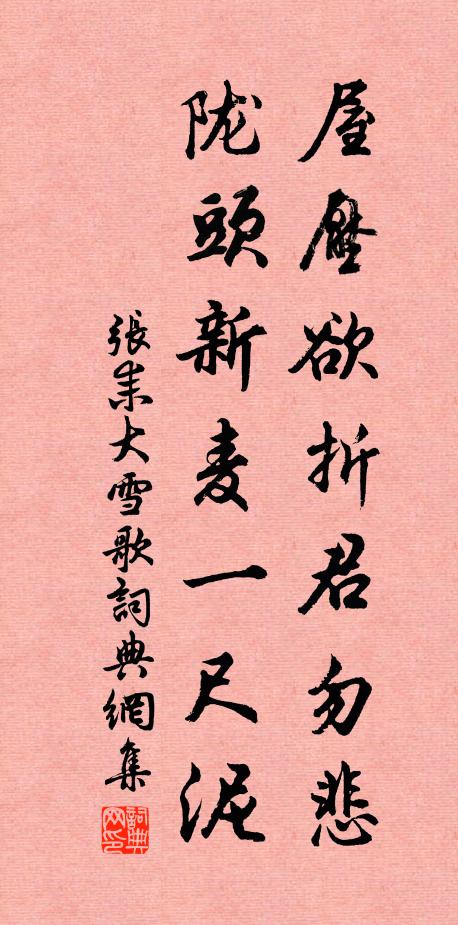 屋壓欲折君勿悲
陇頭新麦一尺泥
張耒大雪歌詞典網集
詞典网印